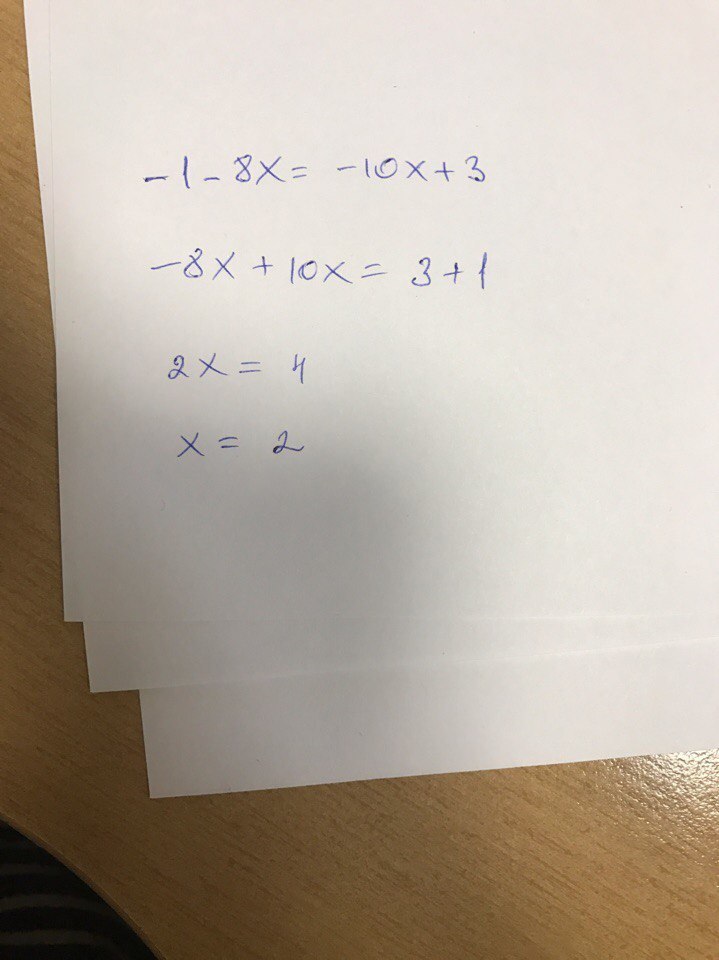 -1-8x=-10x+3
-8x+10x=3+1
2x=4
x=2